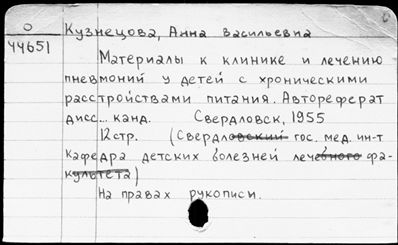 О
44651
Кузнецова, Анна Васильевна
Материалы к клинике и лечению
пневмоний у детей с хроническими
расстройствами питания. Автореферат
дисс... канд. Свердловск, 1955
12 стр. (Свердловский гос. мед. ин-т
Кафедра детских болезней лечебного фа-
культета)
На правах рукописи.